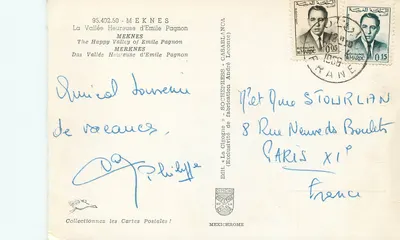 95.402.50 - MEKNES
La Vallée Heureuse d'Emile Pagnon
MEKNES
The Happy Valley of Emile Pagnon
MEKENES
Das Vallée Heureuse d'Emile Pagnon
Amical souvenir
de vacances.
Philippe
Collectionnez les Cartes Postales !
Edit. « La Cigogne » - SOCHEPRESS - CASABLANCA
(Exclusivité de fabrication André Leconte)
MEXICHROME
0.15
0.15
FRANE
Mr et Mme STOURLIAN
8 Rue Neuve des Boulets
PARIS XIe
France